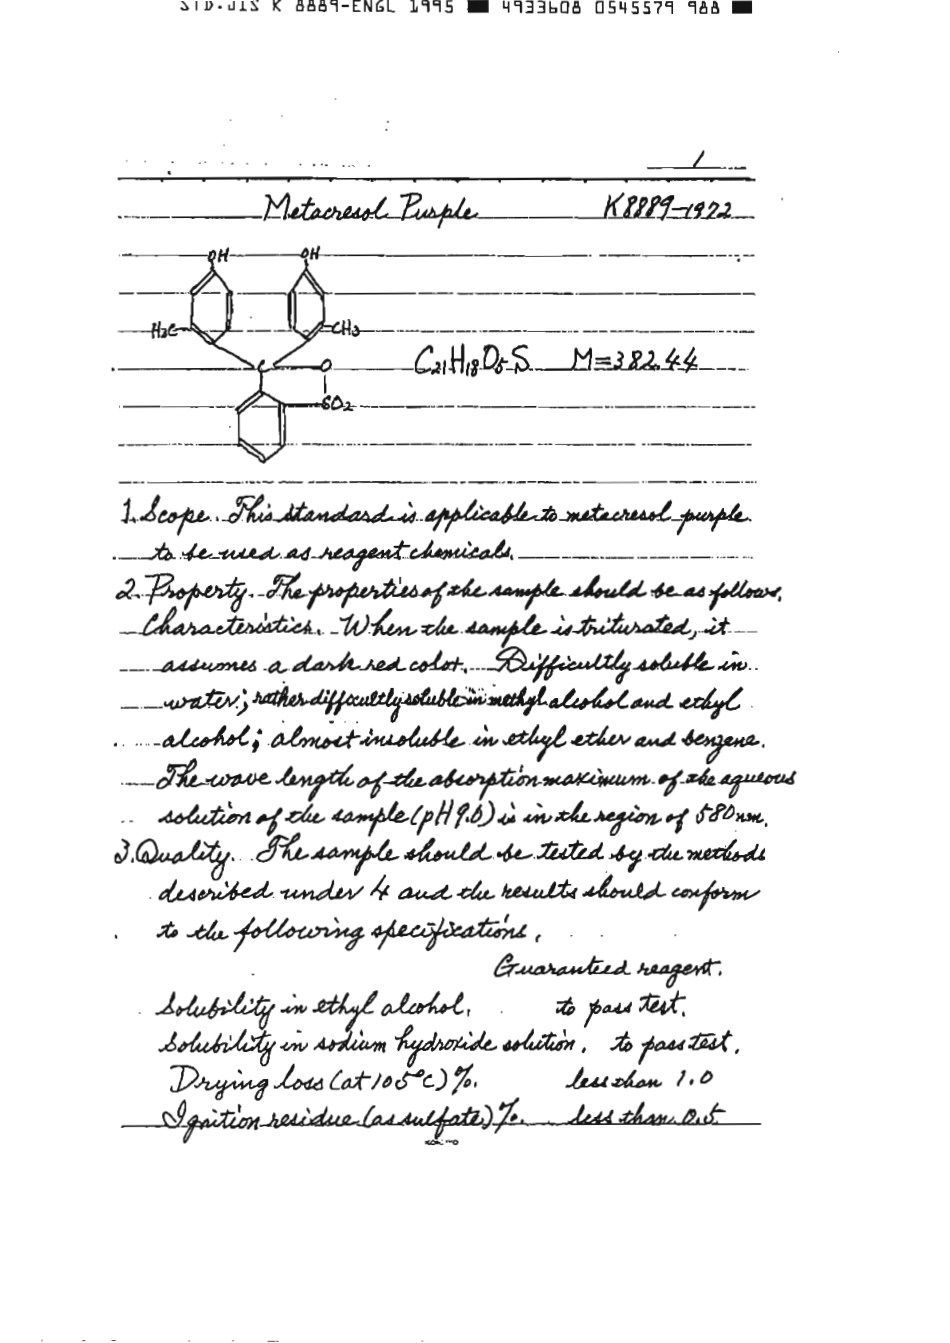 STD.JIS K 8889-ENGL 1995 ■ 4933608 0545579 988 ■
1
Metacresol Purple K8889-1972
OH OH
H3C CH3
C O C21H18O5S M=382.44
SO2
1. Scope. This standard is applicable to metacresol purple
to be used as reagent chemicals.
2. Property. The properties of the sample should be as follows.
Characteristics. When the sample is triturated, it
assumes a dark red color. Difficultly soluble in
water; rather difficultly soluble in methyl alcohol and ethyl
alcohol; almost insoluble in ethyl ether and benzene.
The wave length of the absorption maximum of the aqueous
solution of the sample (pH 9.6) is in the region of 580 nm.
3. Quality. The sample should be tested by the methods
described under 4 and the results should conform
to the following specifications.
Guaranteed reagent.
Solubility in ethyl alcohol. to pass test.
Solubility in sodium hydroxide solution. to pass test.
Drying loss (at 105°C) %. less than 1.0
Ignition residue (as sulfate) %. less than 0.5